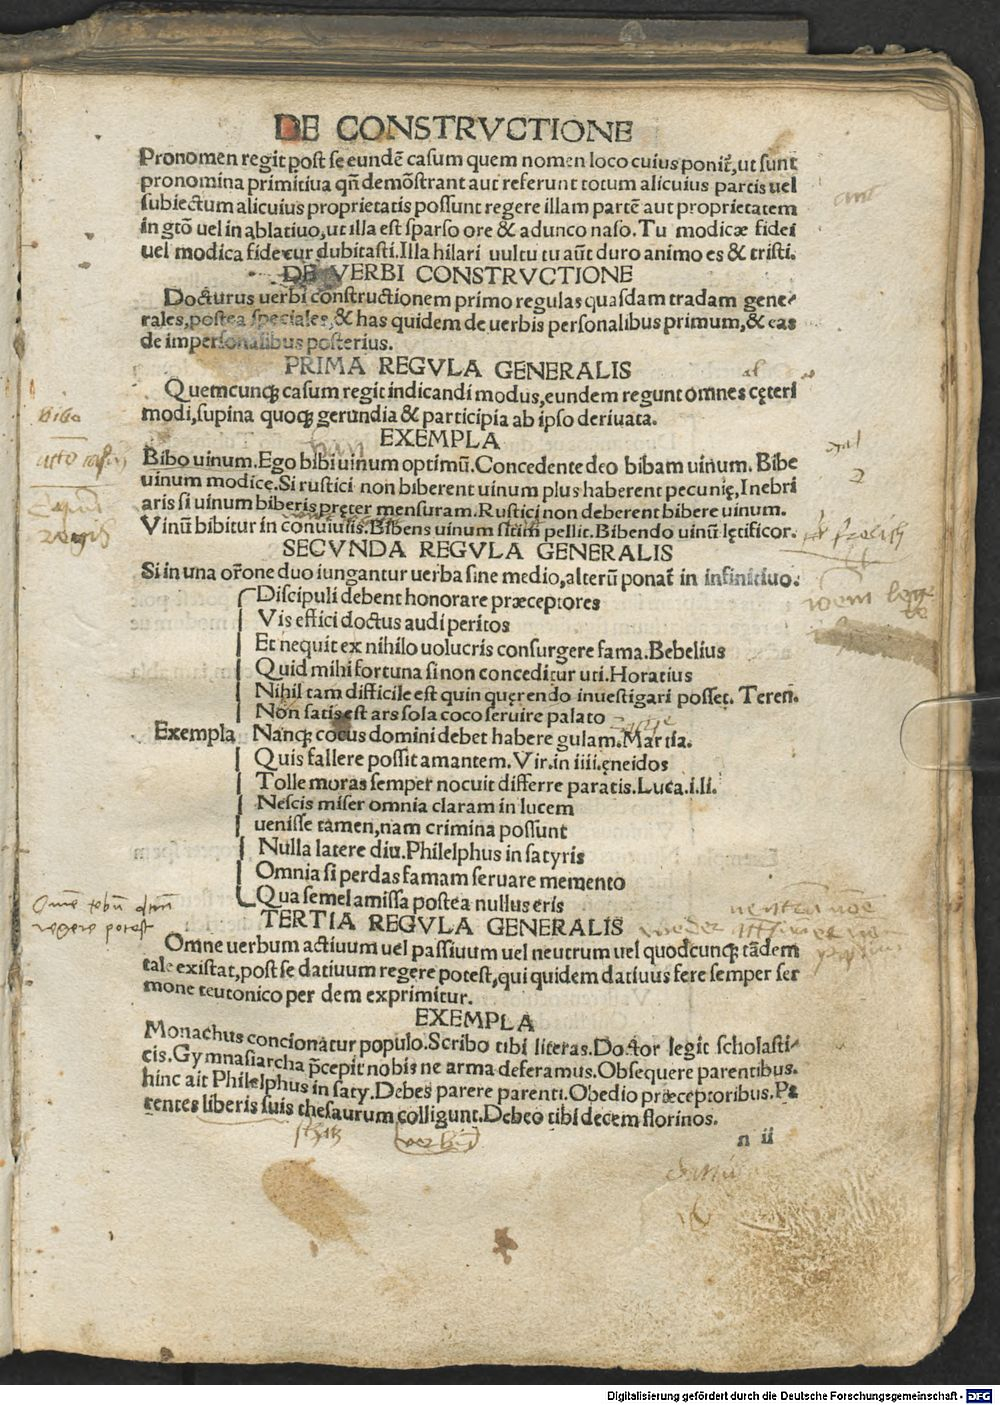 DE CONSTRVCTIONE
Pronomen regit post se eundē casum quem nomen loco cuius poniť, ut sunt
pronomina primitiua qñ demōstrant aut referunt totum alicuius partis uel
subiectum alicuius proprietatis possunt regere illam partē aut proprietatem
in gtō uel in ablatiuo, ut illa est sparso ore & adunco naso. Tu modicæ fidei
uel modica fide cur dubitasti. Illa hilari uultu tu aūt duro animo es & tristi.
DE VERBI CONSTRVCTIONE
Docturus uerbi constructionem primo regulas quasdam tradam gene⸗
rales, postea speciales, & has quidem de uerbis personalibus primum, & eas
de impersonalibus posterius.
PRIMA REGVLA GENERALIS
Quemcunqꝫ casum regit indicandi modus, eundem regunt omnes cęteri
modi, supina quoqꝫ gerundia & participia ab ipso deriuata.
EXEMPLA
Bibo uinum. Ego bibi uinum optimū. Concedente deo bibam uinum. Bibe
uinum modicę. Si rustici non biberent uinum plus haberent pecunię, Inebri
aris si uinum biberis pręter mensuram. Rustici non deberent bibere uinum.
Vinū bibitur in conuiuiis. Bibens uinum sitim pellit. Bibendo uinū lętificor.
SECVNDA REGVLA GENERALIS
Si in una or̄one duo iungantur uerba sine medio, alterū ponať in infinitiuo.
Discipuli debent honorare præceptores
Vis effici doctus audi peritos
Et nequit ex nihilo uolucris consurgere fama. Bebelius
Quid mihi fortuna si non conceditur uti. Horatius
Nihil tam difficile est quin quęrendo inuestigari posset. Tereñ.
Non satis est ars sola coco seruire palato
Exempla Nanqꝫ cocus domini debet habere gulam. Martia.
Quis fallere possit amantem. Vir. in iiii. ęneidos
Tolle moras semper nocuit differre paratis. Luca. i. li.
Nescis miser omnia claram in lucem
uenisse tamen, nam crimina possunt
Nulla latere diu. Philelphus in satyris
Omnia si perdas famam seruare memento
Qua semel amissa postea nullus eris
TERTIA REGVLA GENERALIS
Omne uerbum actiuum uel passiuum uel neutrum uel quodcunqꝫ tādem
tale existat, post se datiuum regere potest, qui quidem datiuus fere semper ser
mone teutonico per dem exprimitur.
EXEMPLA
Monachus concionatur populo. Scribo tibi literas. Doctor legit scholasti⸗
cis. Gymnasiarcha p̄cepit nobis ne arma deferamus. Obsequere parentibus.
hinc ait Philelphus in saty. Debes parere parenti. Obedio præceptoribus. Pa
rentes liberis suis thesaurum colligunt. Debeo tibi decem florinos.
n ii
Digitalisierung gefördert durch die Deutsche Forschungsgemeinschaft - DFG